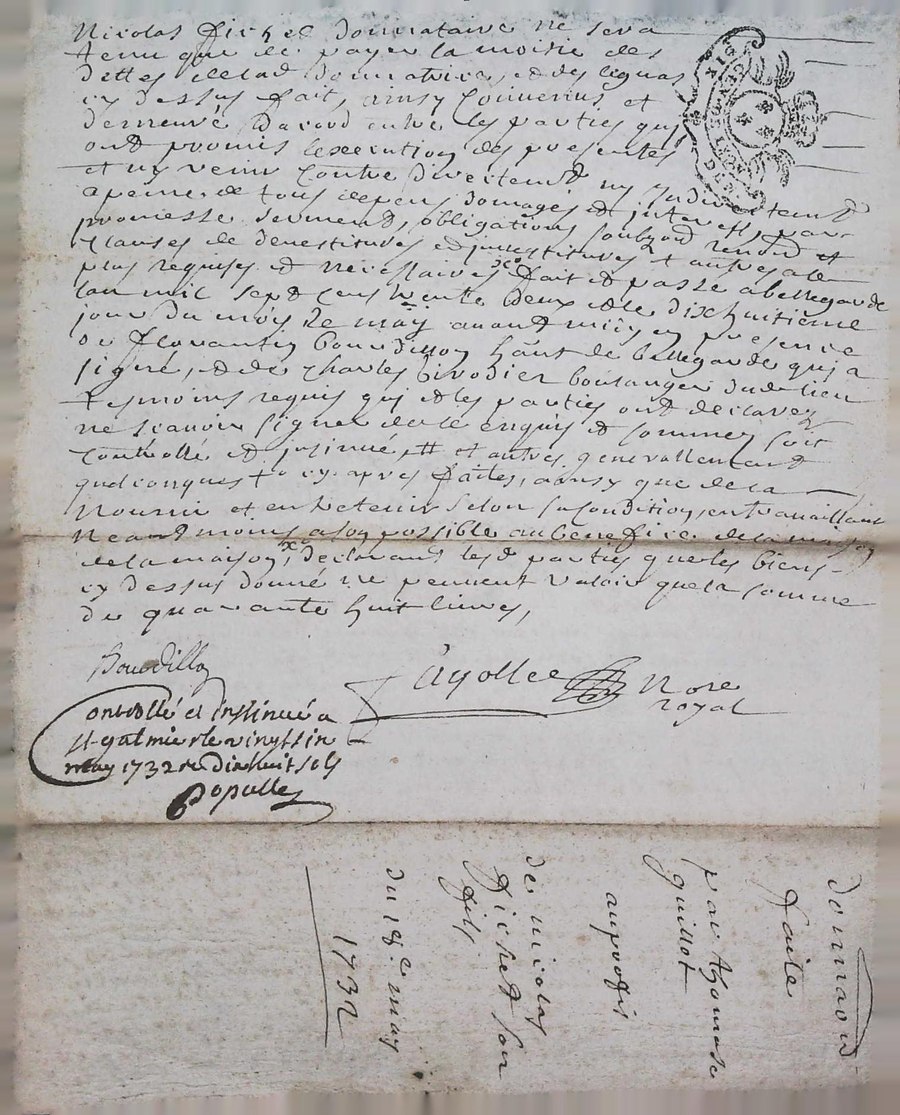 Nicolas fichet donnataire ne sera
tenu que de payer la moitié des
dettes de lad donnatrice, et des leguas
cy dessus fait, ainsy convenus et
demeuré dacord entre les parties quy
ont promis lexecution des presentes
et ny venir contre directemt ny Indirectemt
a peine de tous depens domages et interest, par
promesse serment, obligations soubzond renond et
clauses de devestitures et investitures & autres ale
plus requises et necessaires fait et passé a bellegarde
lan mil sept cens trente deux et le dixhuitième
jour du mois de may avant midy en presence
de bourdillon hant de bellegarde quy a
signé, et de Charles boulanger dud lieu
tesmoins requis quy et les parties ont declarez
ne scavoir signer de ce enquis et sommez soit
controllé et insinué, # et autres generallement
quelconques cy apres faites, ainsy que de la
nourrir et entretenir selon sa condition, en travaillant
neantmoins a son possible au benefice
de la maison, declarant lesd parties que les biens
cy dessus donné ne peuvent valoir que la somme
de quarante huit livres,
Bourdillon
Ayollee Nore
royal
Controllé et Insinué a
st galmier le vingt six
may 1732 re dixhuit sols
Populle
donnaon
faite
par thomase
guillot
au profit
de nicolas
fichet son
fils
du 18e may
1732